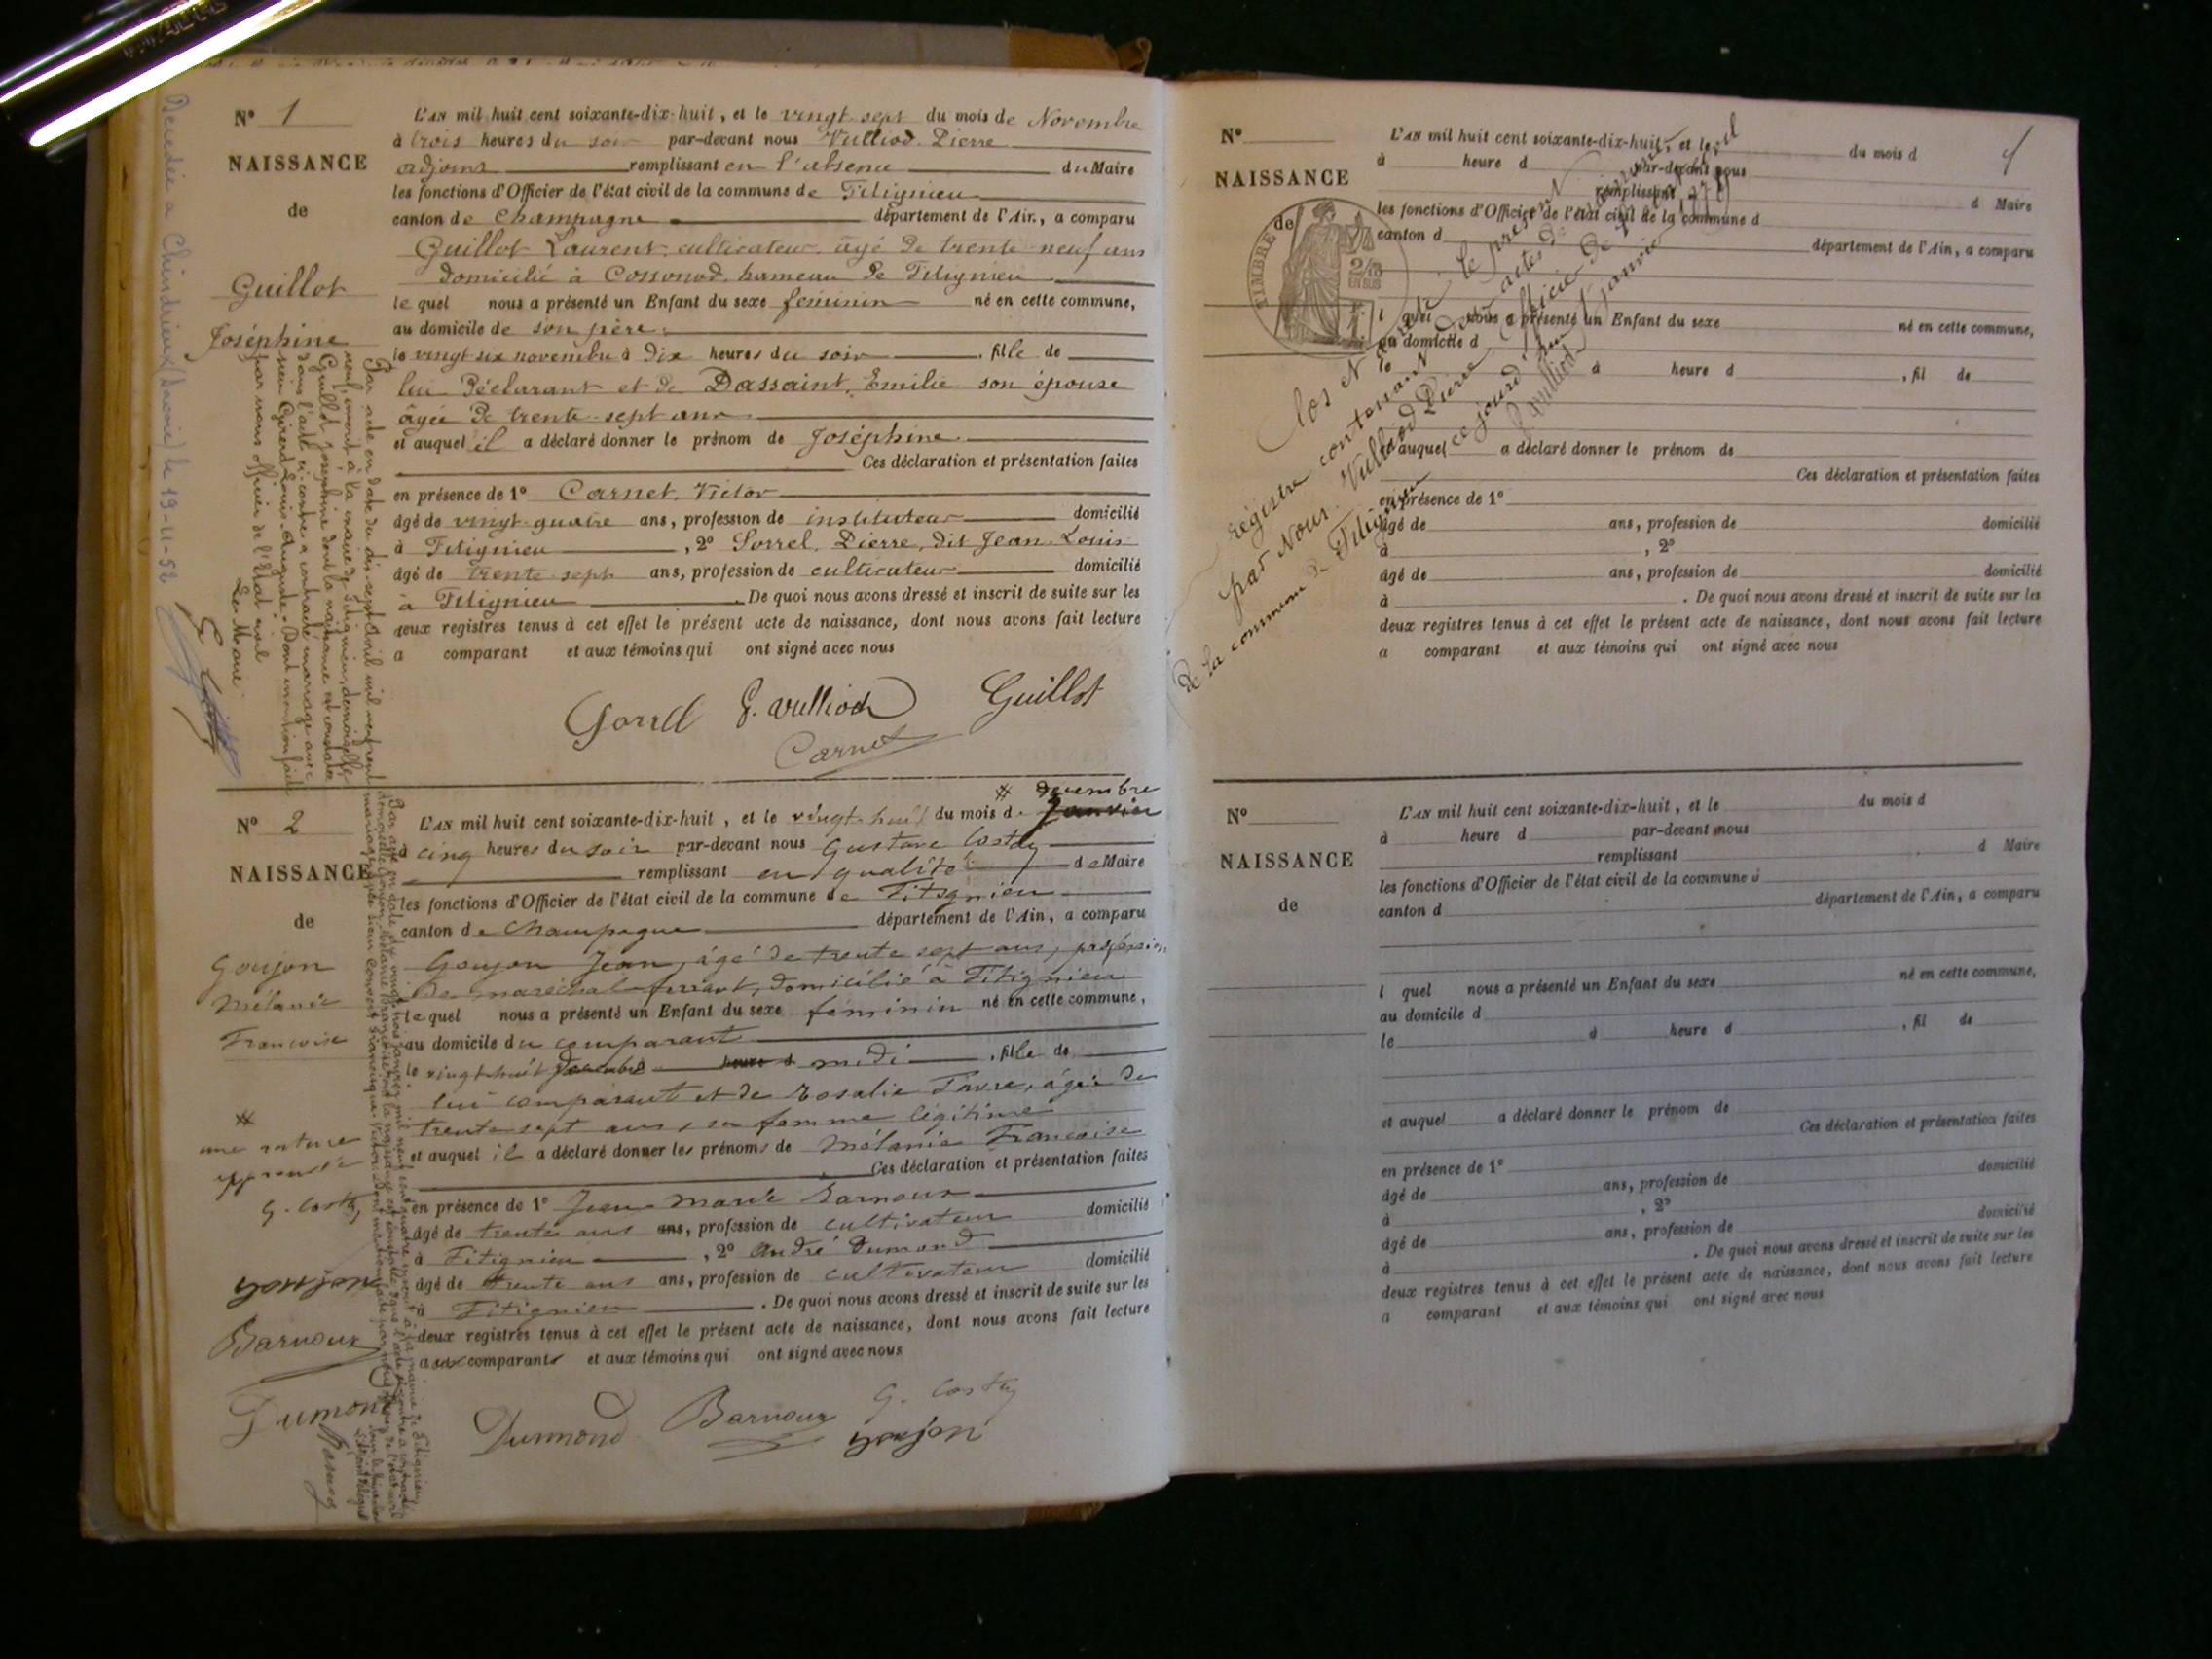 N° 1
NAISSANCE
de
Guillot
Joséphine
L'AN mil huit cent soixante-dix-huit, et le vingt sept du mois de Novembre
à trois heures du soir par-devant nous Vulliod Pierre
adjoint remplissant en l'absence du Maire
les fonctions d'Officier de l'état civil de la commune de Fitignieu
canton de Champagne département de l'Ain, a comparu
Guillot Laurent, cultivateur, âgé de trente neuf ans
domicilié à Cossonod, hameau de Fitignieu
le quel nous a présenté un Enfant du sexe féminin né en cette commune,
au domicile de son père
le vingt six novembre à dix heures du soir, fille de
lui déclarant et de Dassaint, Emilie son épouse
âgée de trente-sept ans
et auquel il a déclaré donner le prénom de Joséphine.
Ces déclaration et présentation faites
en présence de 1° Carnet, Victor
âgé de vingt quatre ans, profession de instituteur domicilié
à Fitignieu, 2° Sorrel, Pierre, dit Jean-Louis
âgé de trente sept ans, profession de cultivateur domicilié
à Fitignieu. De quoi nous avons dressé et inscrit de suite sur les
deux registres tenus à cet effet le présent acte de naissance, dont nous avons fait lecture
a comparant et aux témoins qui ont signé avec nous
P. Vulliod Guillot
Carnet
Décédée à Chindrieux (Savoie) le 19-11-52
Par acte en date du dix-sept Avril mil neuf cent
neuf, inscrit à la mairie de Fitignieu, demoiselle
Guillot Joséphine dont la naissance est constatée
dans l'acte ci-contre a contracté mariage avec
par nous officier de l'Etat civil
Le Maire
N° 2
NAISSANCE
de
Goujon
Mélanie
Francoise
# décembre
L'AN mil huit cent soixante-dix-huit, et le vingt-huit du mois de Janvier
à cinq heures du soir par-devant nous Gustave Costaz
remplissant en qualité de Maire
les fonctions d'Officier de l'état civil de la commune de Fitignieu
canton de Champagne département de l'Ain, a comparu
Goujon Jean, âgé de trente sept ans, profession
de maréchal-ferrant, domicilié à Fitignieu
le quel nous a présenté un Enfant du sexe féminin né en cette commune,
au domicile du comparant
le vingt-huit décembre à heure d midi, fille de
lui comparant et de Rosalie Favre, âgée de
trente sept ans, sa femme légitime
et auquel il a déclaré donner les prénoms de Mélanie Francoise
Ces déclaration et présentation faites
en présence de 1° Jean Marie Barnoux
âgé de trente ans ans, profession de cultivateur domicilié
à Fitignieu, 2° André Dumond
âgé de trente ans ans, profession de cultivateur domicilié
à Fitignieu. De quoi nous avons dressé et inscrit de suite sur les
deux registres tenus à cet effet le présent acte de naissance, dont nous avons fait lecture
aux comparants et aux témoins qui ont signé avec nous
#
une rature
approuvée
G. Costaz
Goujon
Barnoux
Dumond
Dumond Barnoux G. Costaz
Goujon
4
N°
NAISSANCE
de
TIMBRE
2/10
EN SUS
L'AN mil huit cent soixante-dix-huit, et le du mois d
à heure d par-devant nous
remplissant d Maire
les fonctions d'Officier de l'état civil de la commune d
canton d département de l'Ain, a comparu
l quel nous a présenté un Enfant du sexe né en cette commune,
au domicile d
le à heure d, fil de
et auquel a déclaré donner le prénom de
Ces déclaration et présentation faites
en présence de 1°
âgé de ans, profession de domicilié
à, 2°
âgé de ans, profession de domicilié
à. De quoi nous avons dressé et inscrit de suite sur les
deux registres tenus à cet effet le présent acte de naissance, dont nous avons fait lecture
a comparant et aux témoins qui ont signé avec nous
Clos et arrêté le présent
registre contenant deux actes de naissance
par Nous Vulliod Pierre, officier de l'état civil
de la commune de Fitignieu ce jourd'hui 1er janvier 1879
P. Vulliod
N°
NAISSANCE
de
L'AN mil huit cent soixante-dix-huit, et le du mois d
à heure d par-devant nous
remplissant d Maire
les fonctions d'Officier de l'état civil de la commune d
canton d département de l'Ain, a comparu
l quel nous a présenté un Enfant du sexe né en cette commune,
au domicile d
le à heure d, fil de
et auquel a déclaré donner le prénom de
Ces déclaration et présentation faites
en présence de 1°
âgé de ans, profession de domicilié
à, 2°
âgé de ans, profession de domicilié
à. De quoi nous avons dressé et inscrit de suite sur les
deux registres tenus à cet effet le présent acte de naissance, dont nous avons fait lecture
a comparant et aux témoins qui ont signé avec nous